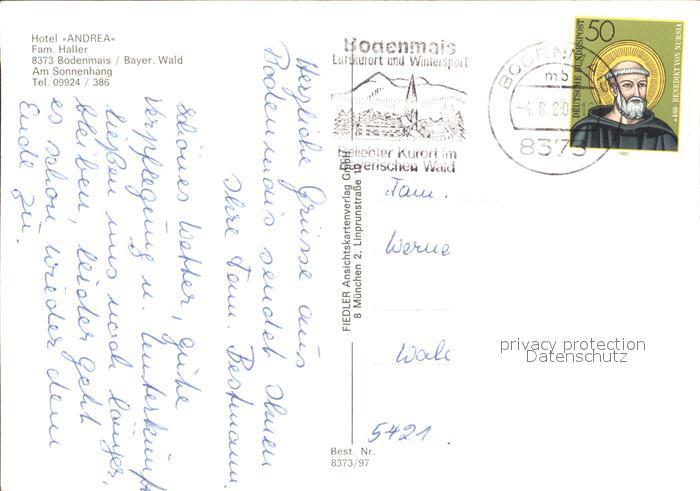 Hotel »ANDREA«
Fam. Haller
8373 Bodenmais / Bayer. Wald
Am Sonnenhang
Tel. 09924 / 386
Bodenmais
Luftkurort und Wintersport
Beliebter Kurort im
Bayerischen Wald
BODENMAIS
mb
8373
50
DEUTSCHE BUNDESPOST
480 · BENEDIKT VON NURSIA
1980
Herzliche Grüsse aus
Bodenmais sendet Ihnen
Ihre Fam. Bestmann.
schönes Wetter, gute
Verpflegung u. Unterkunft
ließen uns noch länger,
bleiben, leider geht
es schon wieder dem
Ende zu.
FIEDLER Ansichtskartenverlag GmbH
8 München 2, Linprunstraße 10
Fam.
Werne
Wald
5421
privacy protection
Datenschutz
Best. Nr.
8373/97